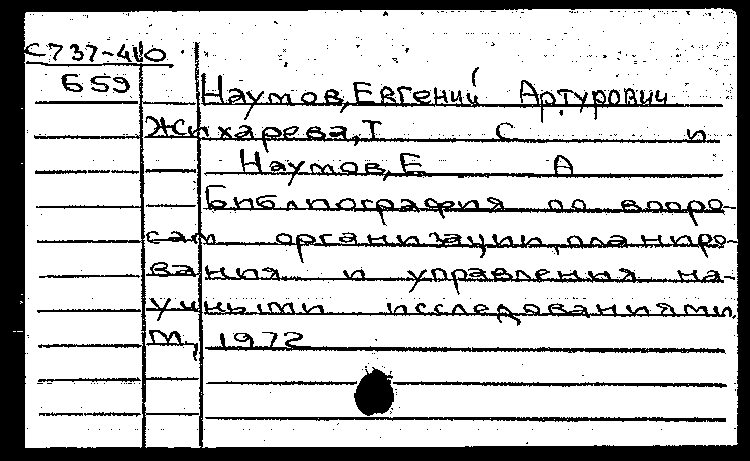 С737-40
Б59
Наумов, Евгений Артурович
Жихарева, Т С и
Наумов, Е А
Библиография по вопро-
сам организации, планиро-
вания и управления на-
учными исследованиями
М, 1972